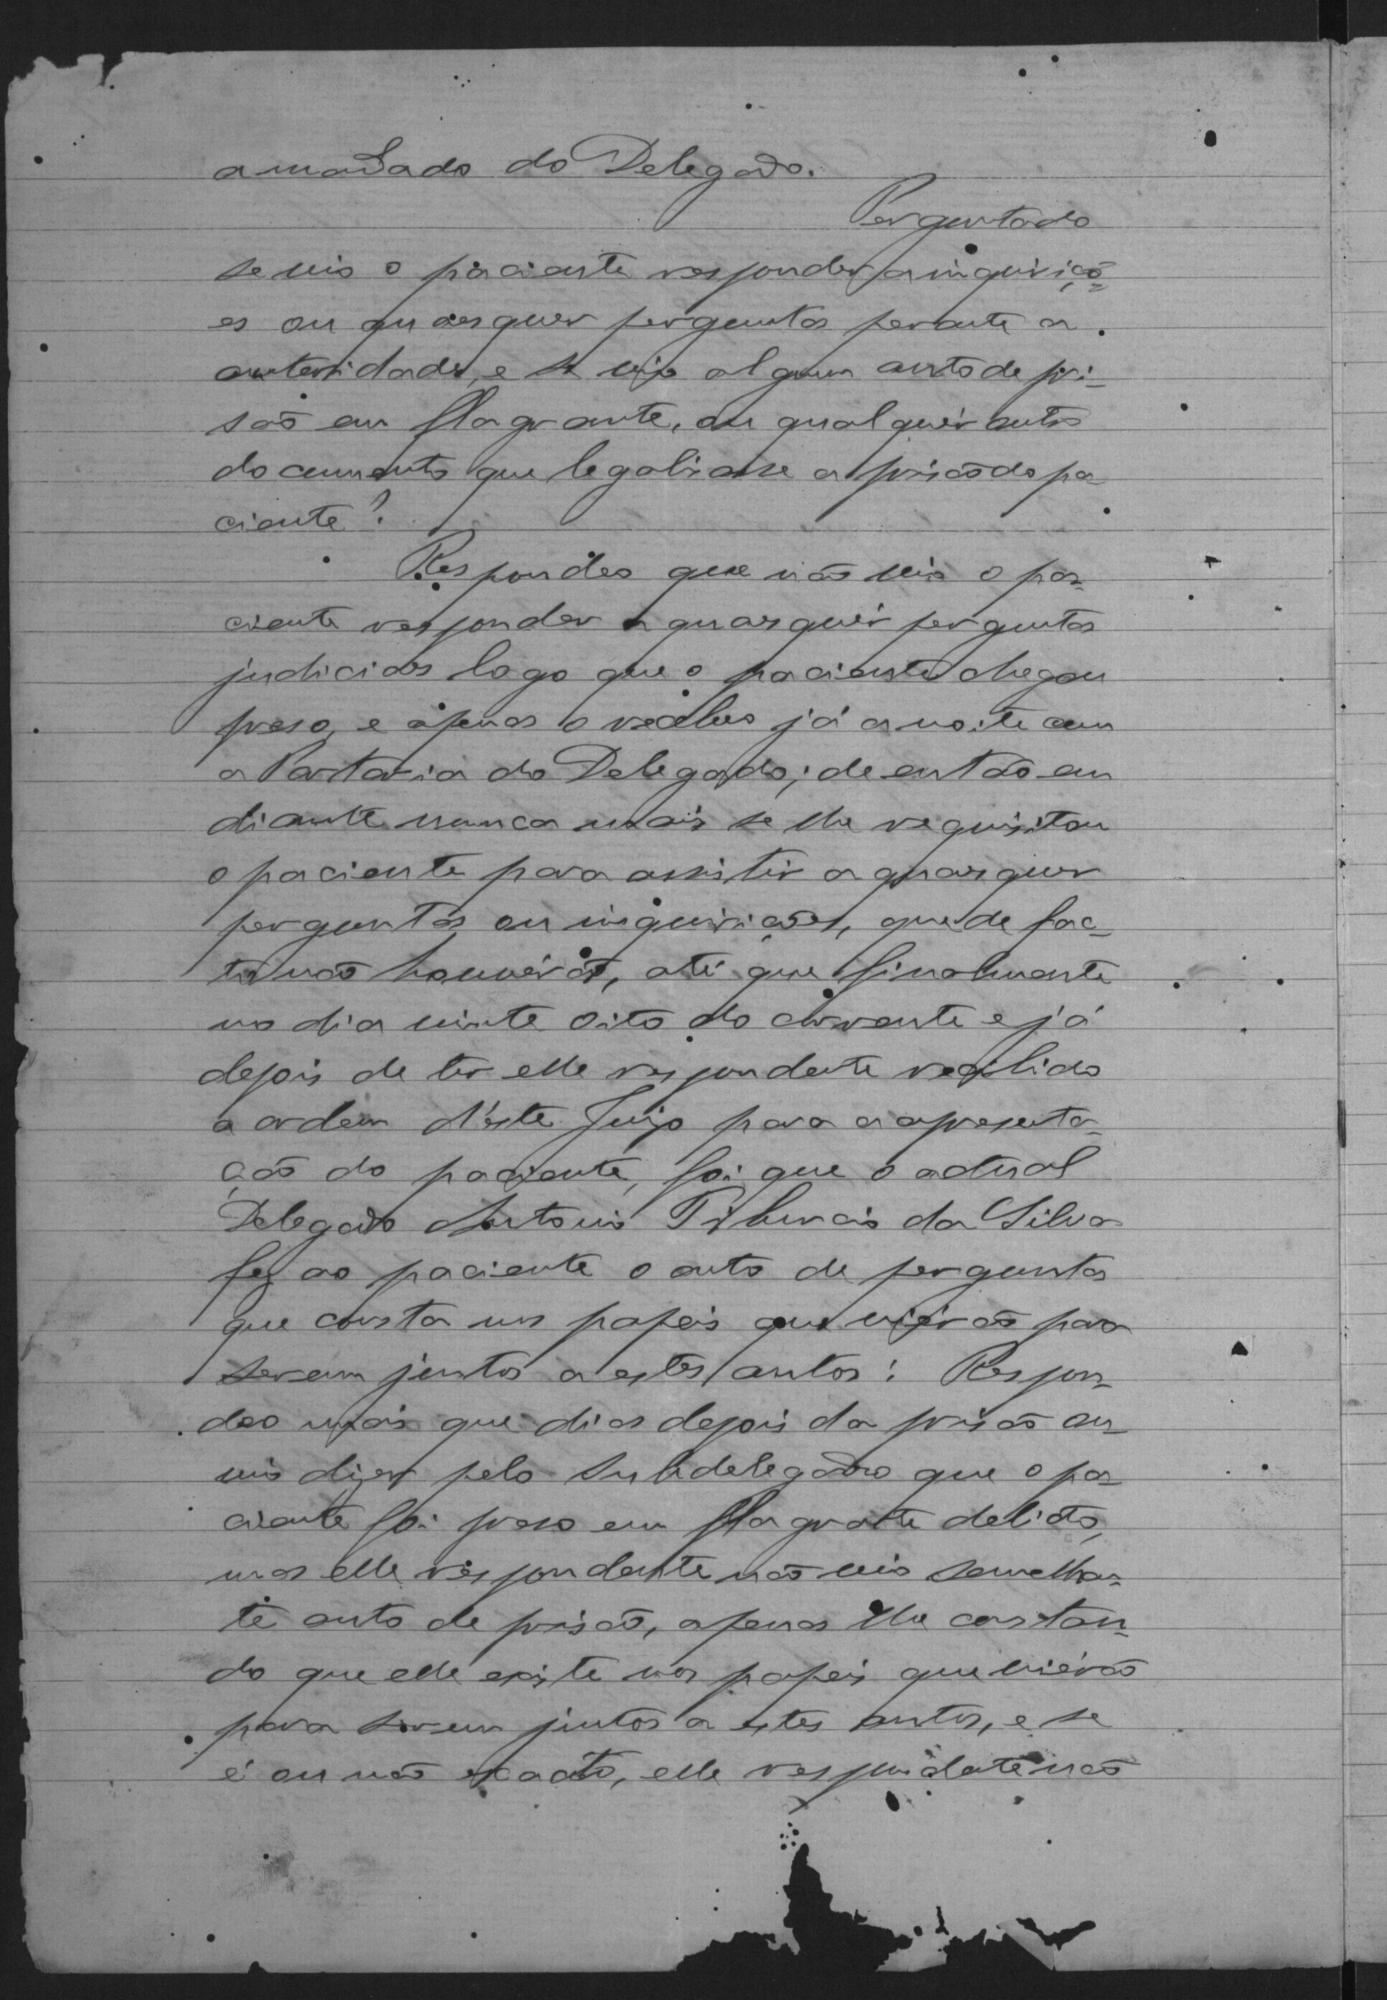 a mandado do Delegado.
Perguntado
se vio o paciente responder a inquiriçõ=
es ou quaesquer perguntas perante a
autoridade, e se vio algum auto de pri-
são em flagrante, ou qualquér outro
documento que legalisase a prisão do pa-
ciente?
Respondeo que não vio o pa-
ciente responder a quaesquér perguntas
judiciaes logo que o paciente chegou
preso, e apenas o recebeo já a noite com
a Portaria do Delegado; de então em
diante nunca mais se lhe requisitou
o paciente para assistir a quaesquer
perguntas ou inquirições, que de fac-
to não houverão, até que finalmente
no dia vinte oito do corrente e já
depois de ter elle respondente recebido
a ordem d'este Juizo para a apresenta-
ção do paciente, foi que o actual
Delegado Antonio Tiburcio da Silva
fez ao paciente o auto de perguntas
que consta nos papeis que viérão para
serem juntos a estes autos: Respon-
deo mais que dias depois da prisão ou-
vio dizer pelo Subdelegado que o pa-
ciente foi preso em flagrante delicto,
mas elle respondente não vio semelhan-
te auto de prisão, apenas lhe constan-
do que elle existe nos papeis que viérão
para serem juntos a estes autos, e se
é ou não exacto, elle respondente não